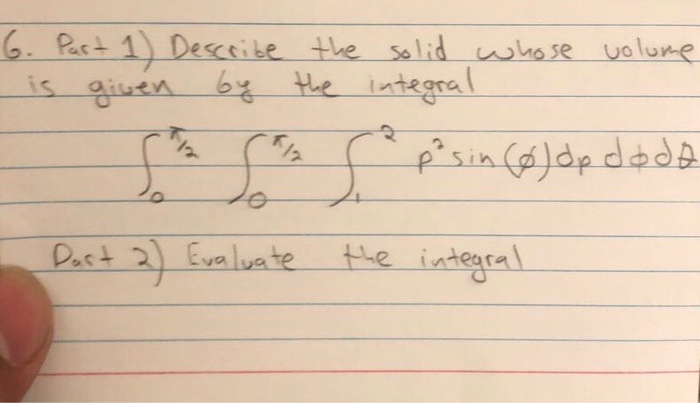 6. Part 1) Describe the solid whose volume
is given by the integral
∫₀^(π/2) ∫₀^(π/2) ∫₁² ρ² sin(φ) dρ dφ dθ
Part 2) Evaluate the integral